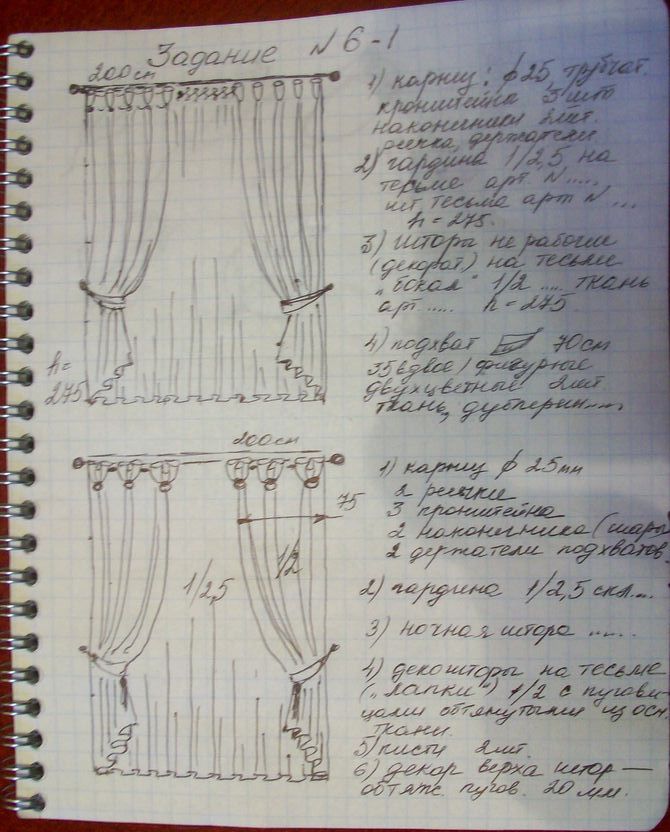 Задание N 6-1
200 cm
1) карниз: ф 25, трубчат.
кронштейна 3 шт
наконечники 2 шт.
рейка, держатели
2) гардина 1/2,5 на
тесьме арт. N .....
шт. тесьма арт N ...
h = 275.
3) Шторы не рабочие
(декорат) на тесьме
"бокал" 1/2 .... ткань
арт ..... h = 275
4) подхват 70 см
35 вдвое / фигурные
двухцветные 2 шт.
ткань, дублерин....
h =
275
200 cm
75
1/2
1/2,5
1) карниз ф 25 мм
2 рельки
3 кронштейна
2 наконечника (шары
2 держатели подхватов.
2) гардина 1/2,5 скл...
3) ночная штора .....
4) декошторы на тесьме
("лапки") 1/2 с пугови-
цами обтянутыми из осн.
ткани.
5) кисти 2 шт.
6) декор верха штор —
обтяж. пугов. 20 мм.